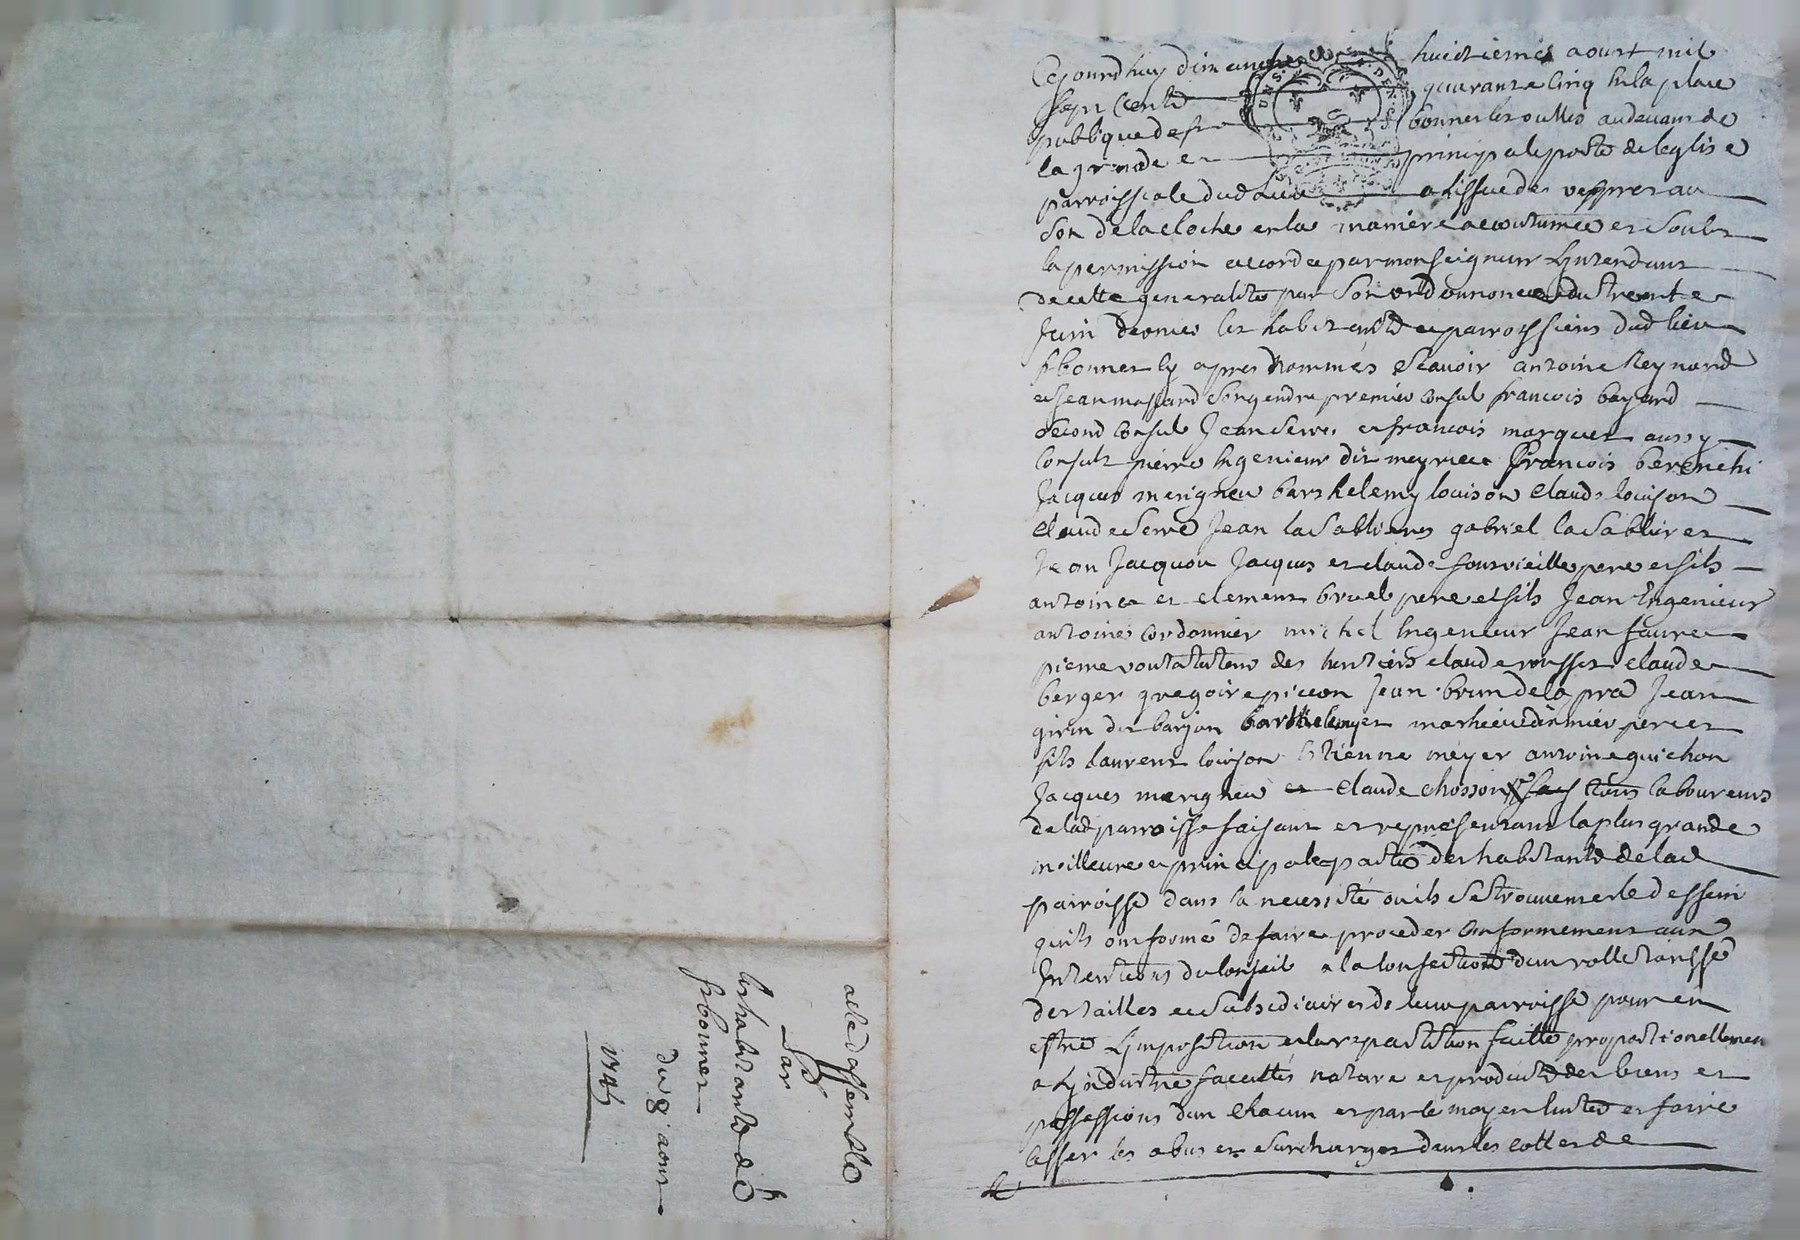 Cejourdhuy dimanche huictieme aoust mil
sept cents quarante cinq en la place
publique de st bonnet les oulles audevant de
la grande et principale porte de leglise
parroissiale dud lieu a lissue des vespres au
son de la cloche en la maniere accoutumée et soubs
la permission accordée par monseigneur Lyntendant
de cette generalité par son ordonnance du trente
juin dernier les habitants et parroissiens dud lieu
st bonnet cy apres nommés scavoir antoine Reynard
et jean massard son gendre premier consul francois bayard
second consul Jean Serre et francois marquet aussy
consuls pierre Ingenieur dit meyrieu francois
Jacques merigneu barthelemy louison claude louison
claude Serre Jean la Sablieres gabriel la Sablieres
Jean Jacquou Jacques et claude fontvieille pere et fils
antoine et clement bruel pere et fils Jean Ingenieur
antoine cordonnier michel Ingenieur Jean faure
pierre des heritiers claude rousset claude
berger gregoire picon Jean brun de la pra Jean
girin dit barjon barthelemy et mathieu dirmier pere et
fils Laurent louison Estienne meyer antoine guichon
Jacques merigneu et claude chosson tous laboureurs
de lad parroisse faisant et representant la plus grande
meilleure et principale partie des habitants de lad
parroisse dans la necessité ou ils se trouvent et le dessein
quils ont formé de faire proceder Conformement aux
Intentions du Conseil a la confection dun rolle tariffé
des tailles et subsidiaires de leur parroisse pour en
estre Lymposition et la repartition faitte proportionellement
a Lyndustrie facultés nature et produits des biens et
possessions dun chacun et par le moyen eviter et faire
cesser les abus et surcharges dans les cottes de
acte dassemblé
par
les habitants de
st bonnet
du 8 aoust
1745